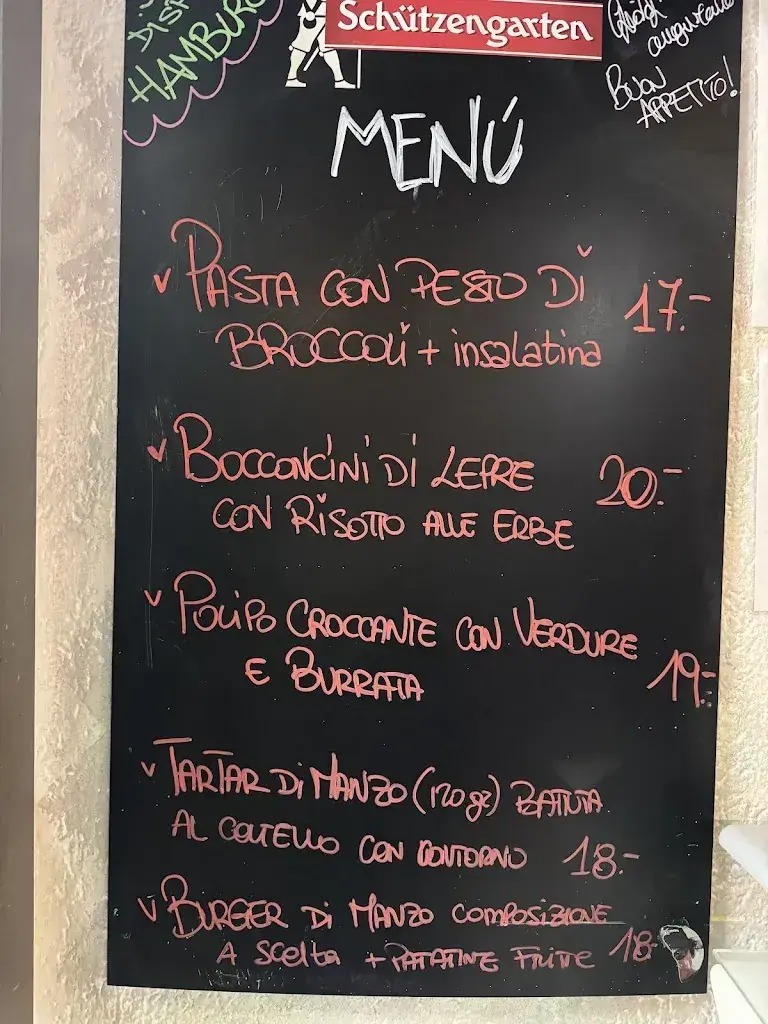 DISP
HAMBURG
Schützengarten
BUON
APPETITO!
MENÚ
v PASTA CON PESTO DI 17.-
BROCCOLI + insalatina
v BOCCONCINI DI LEPRE 20.-
CON RISOTTO ALLE ERBE
v POLIPO CROCCANTE CON VERDURE
E BURRATA 19.-
v TARTAR DI MANZO (120 gr) BATTUTA
AL COLTELLO CON CONTORNO 18.-
v BURGER DI MANZO COMPOSIZIONE
A SCELTA + PATATINE FRITTE 18.-